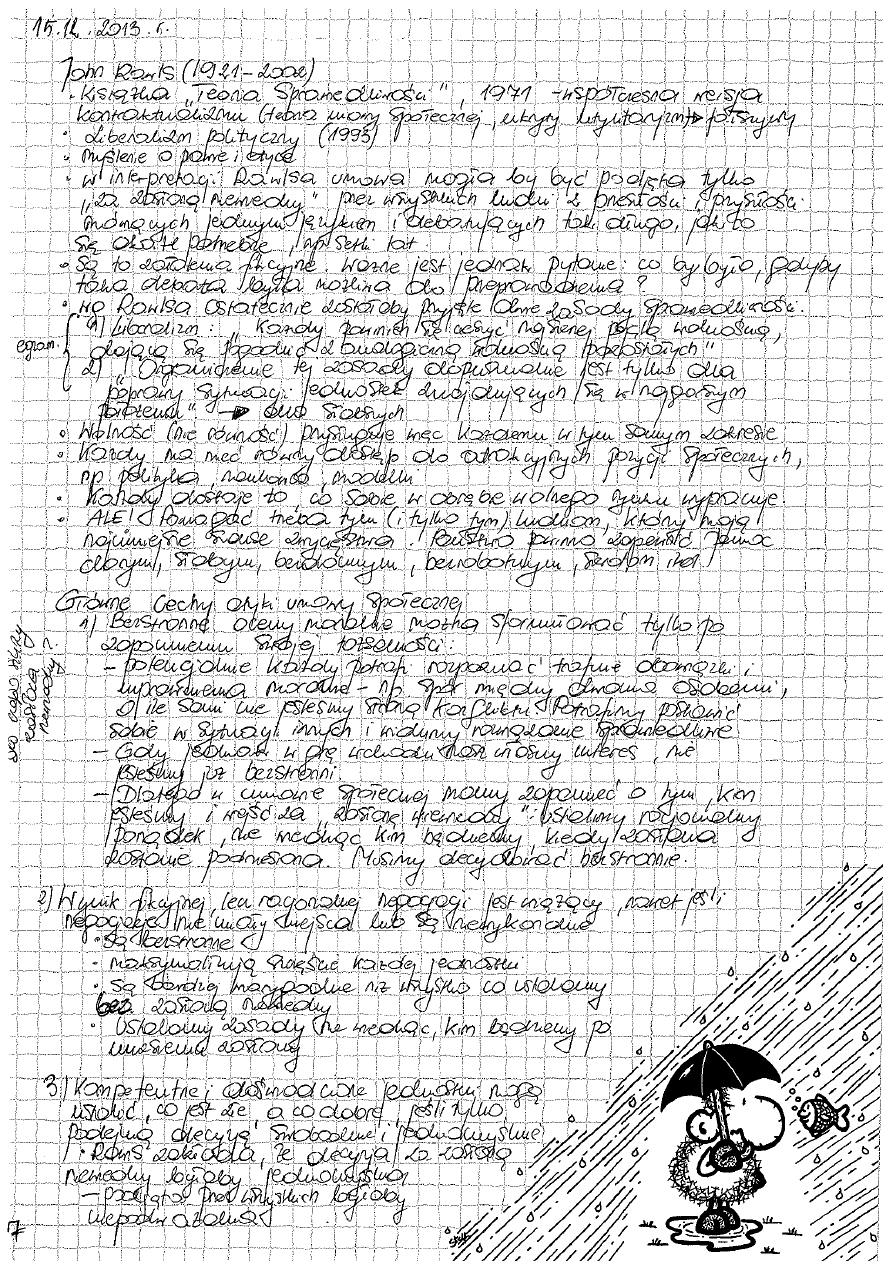 15.12.2013 r.
John Rawls (1921-2002)
• Książka „Teoria Sprawiedliwości", 1971 - współczesna wersja
kontraktualizmu (teoria umowy społecznej, utylitaryzm
• Liberalizm polityczny (1993)
• myślenie o prawie i etyce
• w interpretacji Rawlsa umowa mogła by być podjęta tylko
„za zasłoną niewiedzy" przez wszystkich ludzi z przeszłości i przyszłości
mówiących jednym językiem i debatujących tak długo, jak to
się okaże potrzebne, np setki lat
• Są to założenia fikcyjne. Ważne jest jednak pytanie: co by było, gdyby
taka debata była możliwa do przeprowadzenia?
• wg Rawlsa ostatecznie zostałoby przyjęte dwie zasady sprawiedliwości.
egzam. 1) Liberalizm: „Każdy powinien się cieszyć największą wolnością,
dającą się pogodzić z analogiczną wolnością pozostałych"
2) „Ograniczenie tej zasady dopuszczalne jest tylko dla
poprawy sytuacji jednostek znajdujących się w najgorszym
położeniu" → dla słabszych
• Wolność (nie równość) przysługuje więc każdemu w tym samym zakresie
• Każdy ma mieć równy dostęp do atrakcyjnych pozycji społecznych,
np polityka, naukowca, modelki
• Każdy dostaje to, co sobie w obrębie wolnego rynku wypracuje.
• ALE! Pomagać trzeba tym (i tylko tym) ludziom, którzy mają
najmniejsze szanse zwycięstwa. Państwo powinno zapewnić pomoc
chorym, słabym, bezdomnym, bezrobotnym, sierotom itd.
Główne cechy etyki umowy społecznej
1) Bezstronne oceny moralne można sformułować tylko po
zapomnieniu swojej tożsamości:
- potencjalnie każdy potrafi rozpoznać trafnie obowiązki i
uprawnienia moralne - np. spór między dwoma osobami,
o ile sami nie jesteśmy stroną konfliktu. Potrafimy postawić
siebie w sytuacji innych i widzimy rozwiązanie sprawiedliwe
- Gdy jednak w grę wchodzi nasz własny interes, nie
jesteśmy już bezstronni.
- Dlatego w umowie społecznej mamy zapomnieć o tym, kim
jesteśmy i wejść za „zasłonę niewiedzy". Ustalimy racjonalny
porządek, nie wiedząc kim będziemy, kiedy zasłona
zostanie podniesiona. Musimy decydować bezstronnie.
zasłona
niewiedzy?
2) Wynik fikcyjnej, lecz racjonalnej negocjacji jest wiążący, nawet jeśli
negocjacje nie miały miejsca lub są niewykonalne
• są bezstronne
• maksymalizują szczęście każdej jednostki
• są bardziej wiarygodne niż wszystko co ustalamy
bez zasłony niewiedzy
• Ustalamy zasady nie wiedząc, kim będziemy po
uniesieniu zasłony
3) Kompetentne i doświadczone jednostki mogą
ustalić, co jest złe a co dobre, jeśli tylko
podejmą decyzję swobodnie i jednomyślnie
• Rawls zakłada, że decyzja za zasłoną
niewiedzy byłaby jednomyślna
- podjęta przez wszystkich byłaby
niepodważalna
7